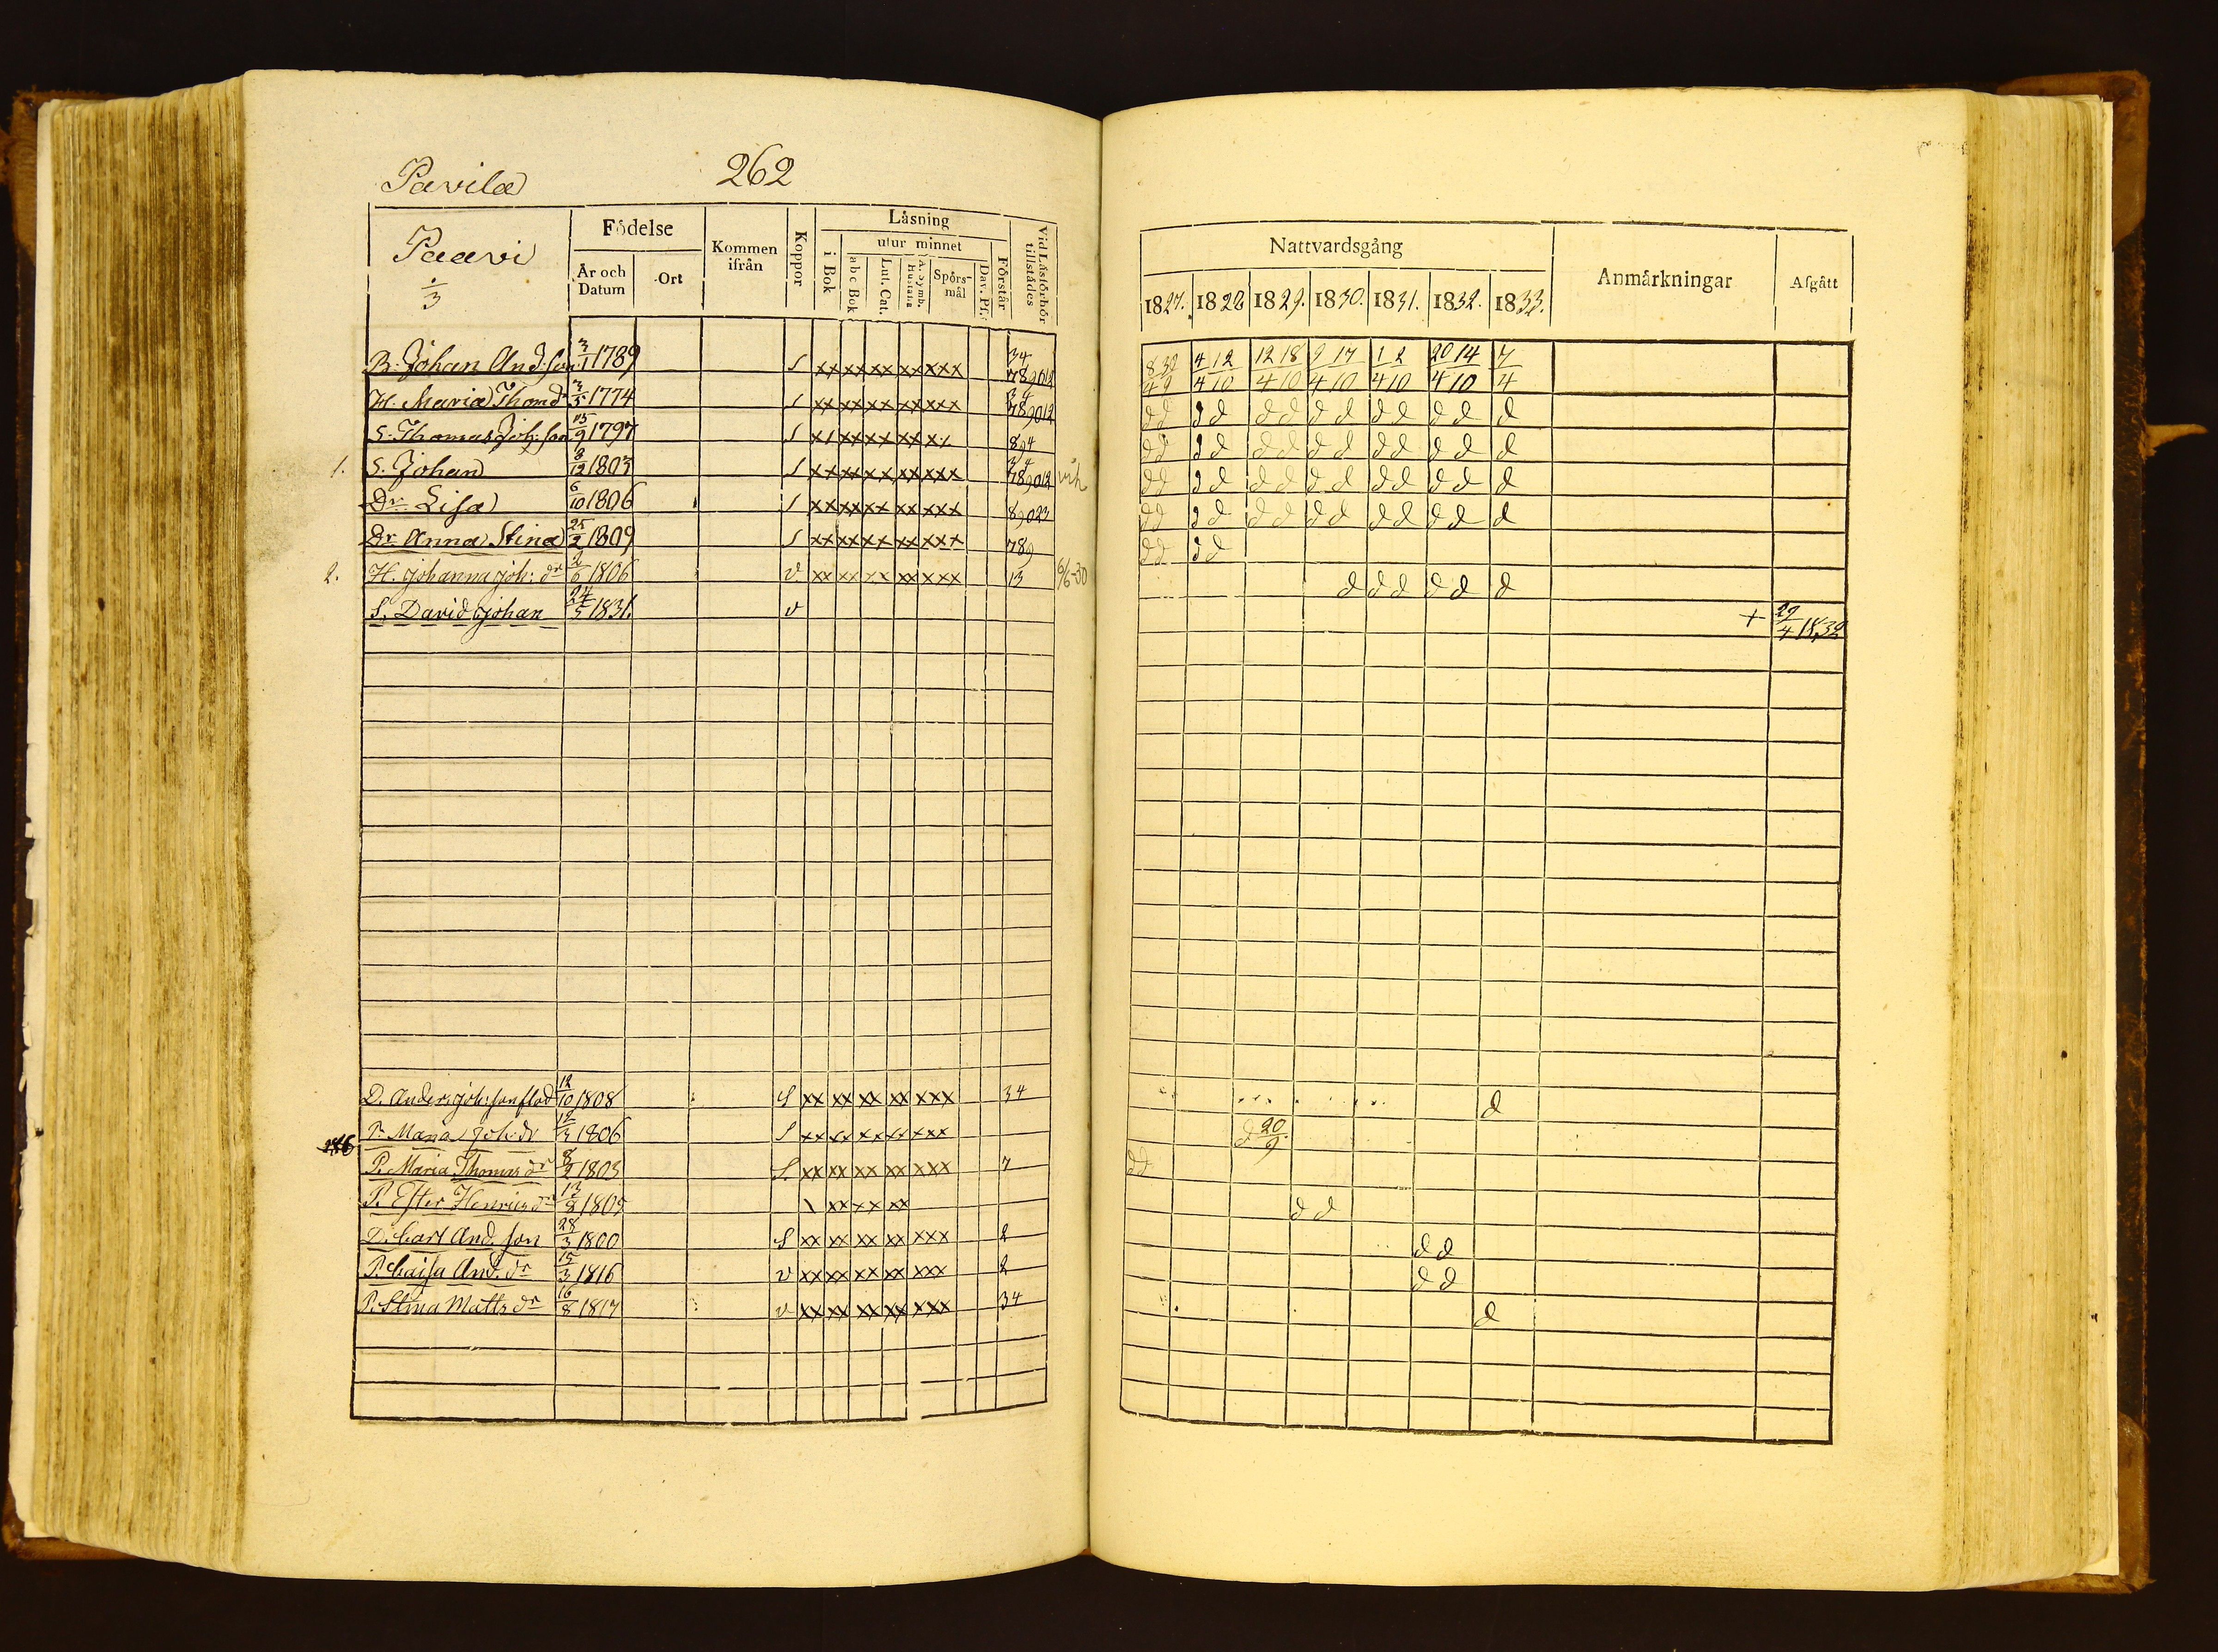 Pavila 262
Paavi
1/3
Födelse
År och Datum
Ort
Kommen ifrån
Koppor
Låsning
i Bok
utur minnet
abc Bok
Lut. Cat.
A. Symb. Hustafla
Spörs-mål
Dav. Ps.
Förstår
Vid Läsförhör tillstådes
Nattvardsgång
1827. 1828 1829. 1830. 1831. 1832. 1833.
Anmärkningar
Afgått
B. Johan And:son 3/1 1789 s xx xx xx xx xxx 34 789012
4/4 12/10 12/4 18/10 9/4 17/10 1/4 2/10 20/4 14/10 7/4
H. Maria Thom dr 3/5 1774 s xx xx xx xx xxx 34 789012 d d d d d d d d d d d d d
S. Thomas Joh:son 15/9 1797 s 894 d d d d d d d d d d d d d
1. S. Johan 8/12 1803 s xx xx xx xx xxx 789012 d d d d d d d d d d d d d
Dr Lisa 6/10 1806 s xx xx xx xx xxx 89023 d d d d d d d d d d d d d
Dr Anna Stina 25/2 1809 s xx xx xx xx xxx 789 d d d d
2. H. Johanna Joh: dr 2/6 1806 v xx xx xx xx xxx 13 6/6-30 d d d d d d
S. David Johan 24/5 1831. v + 29/4 1832
D. Anders Joh:son flod 12/10 1808 S xx xx xx xx xxx 34 d
P. Maria Joh: dr 12/3 1806 s xx xx xx xx xxx d 20/9
P. Maria Thomas dr 8/2 1803 S. xx xx xx xx xxx 7 d d
P. Ester Henrics dr 13/2 1809 \ xx xx xx d d
D. Carl And. son 28/3 1800 S xx xx xx xx xxx 2 d d
P. Caisa And. dr 15/3 1816 v xx xx xx xx xxx 2 d d
P. Stina Matts dr 16/8 1817 v xx xx xx xx xxx 34 d